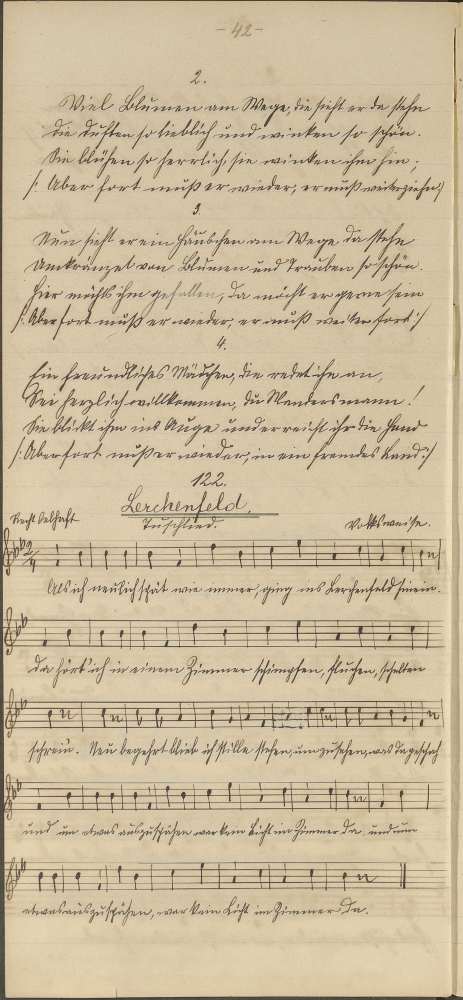 - 42 -
2.
Viel Blumen am Wege, die sieht er da stehn
die duften so lieblich und winken so schön.
Sie blühen so herrlich, sie winken ihm hin;
/: Aber fort muß er wieder, er muß weiterziehn :/
3.
Nun sieht er ein Häuschen am Wege da stehn
Umkränzet von Blumen und Trauben so schön.
Hier möchts ihm gefallen, da möcht er gerne sein
/: Aber fort muß er wieder, er muß weiter fort :/
4.
Ein freundliches Mädchen, die redet ihn an,
Sei herzlich willkommen, du Wandersmann!
Sie blikt ihm ins Auge und er reicht ihr die Hand
/: Aber fort muß er wieder, in ein fremdes Land :/
122.
Lerchenfeld.
Recht lebhaft Tuschlied. Volksweise.
2/4
Als ich neulich spät wie immer, ging ins Lerchenfeld hinein.
da hört' ich in einem Zimmer schimpfen, fluchen, schelten
schrein. Neu begehrt blieb ich stille stehen, um zu sehen, was da geschah
und um etwas auszuspähen war kein Licht im Zimmer da, und um
etwas auszuspähen, war kein Licht im Zimmer da.